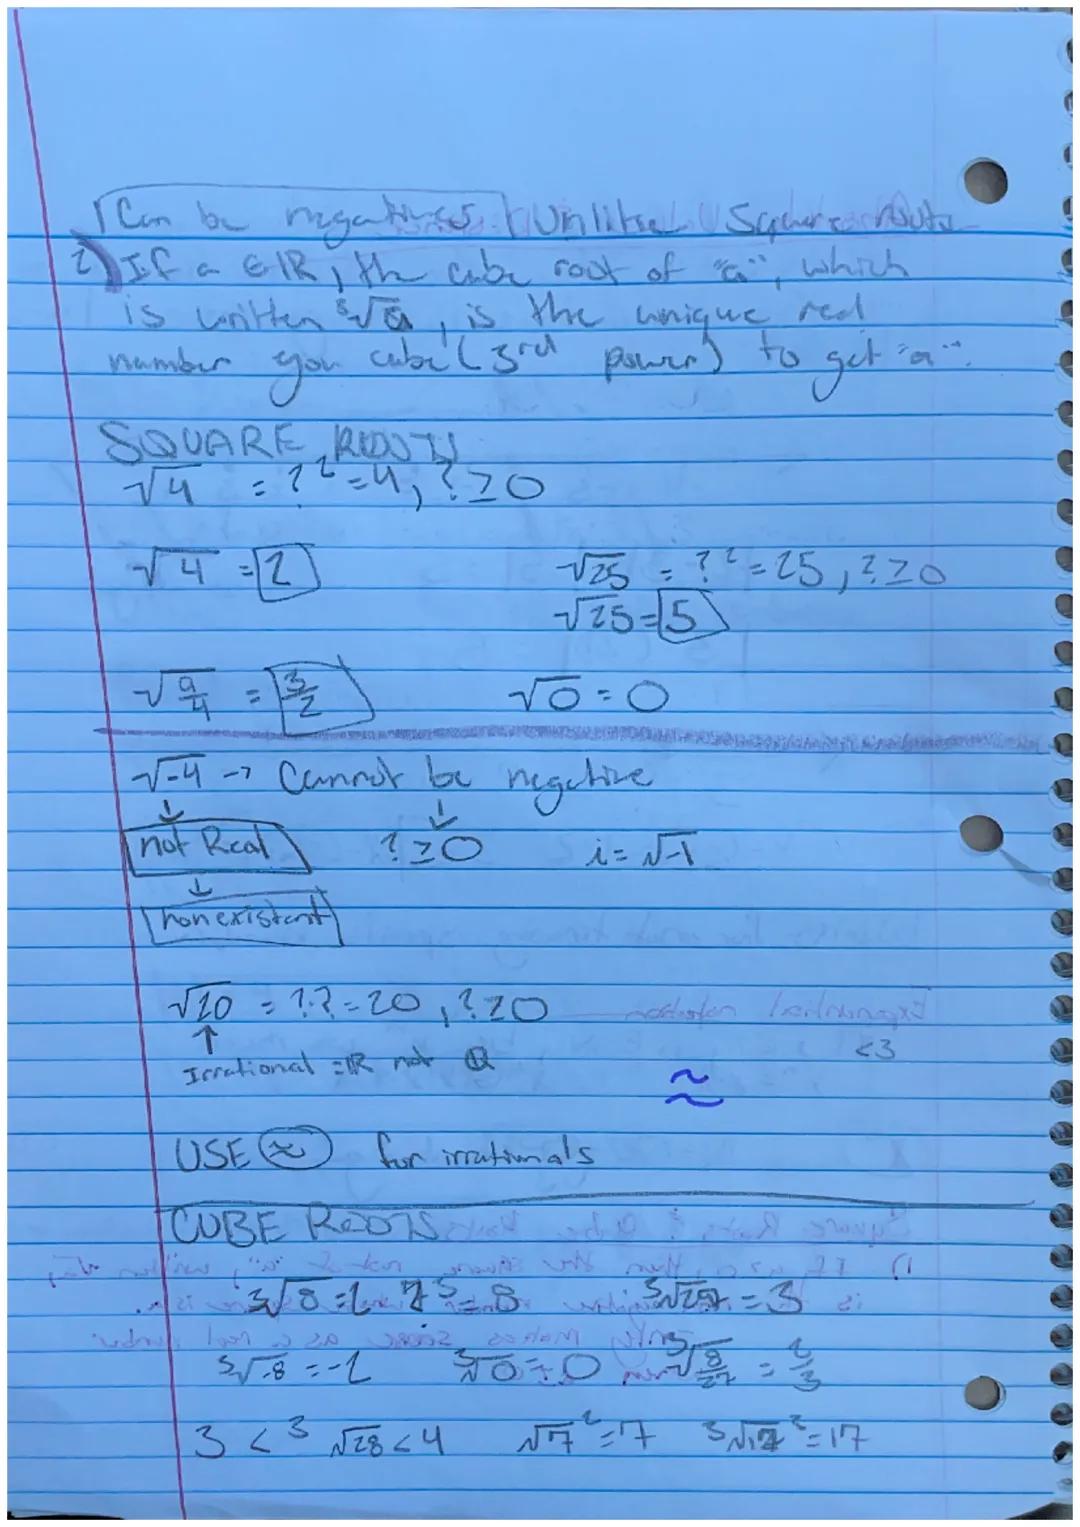 Can be negatives Unlike Square roots
2) If a ∈ ℝ, the cube root of "a", which
is written ³√a, is the unique real
number you cube (3rd power) to get "a".
SQUARE ROOTS
√4 = ?² = 4, ? ≥ 0
√4 = 2
√25 = ?² = 25, ? ≥ 0
√25 = 5
√9/4 = 3/2 √0 = 0
√-4 → Cannot be negative
↓ ↓
not Real ? ≥ 0 i = √-1
↓
nonexistant
√20 = ?·? = 20, ? ≥ 0
↑
Irrational = ℝ not ℚ
≈
USE ≈ for irrationals
CUBE ROOTS
³√8 = 2 ?³ = 8 ³√27 = 3
³√-8 = -2 ³√0 = 0 ³√8/27 = 2/3
3 < ³√28 < 4 √7² = 7 ³√17³ = 17